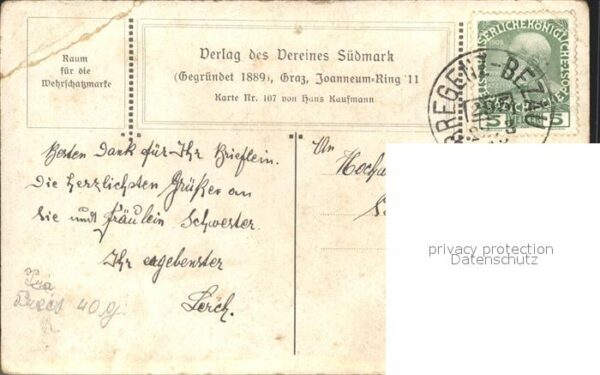 Raum
für die
Wehrschatzmarke
Verlag des Vereines Südmark
(Gegründet 1889), Graz, Joanneum-Ring 11
Karte Nr. 107 von Hans Kaufmann
BREGENZ-BEZAU
5 5
Besten Dank für Ihr Brieflein.
Die herzlichsten Grüße an
Sie und Fräulein Schwester.
Ihr ergebenster
Lerch.
An
privacy protection
Datenschutz
40 g.